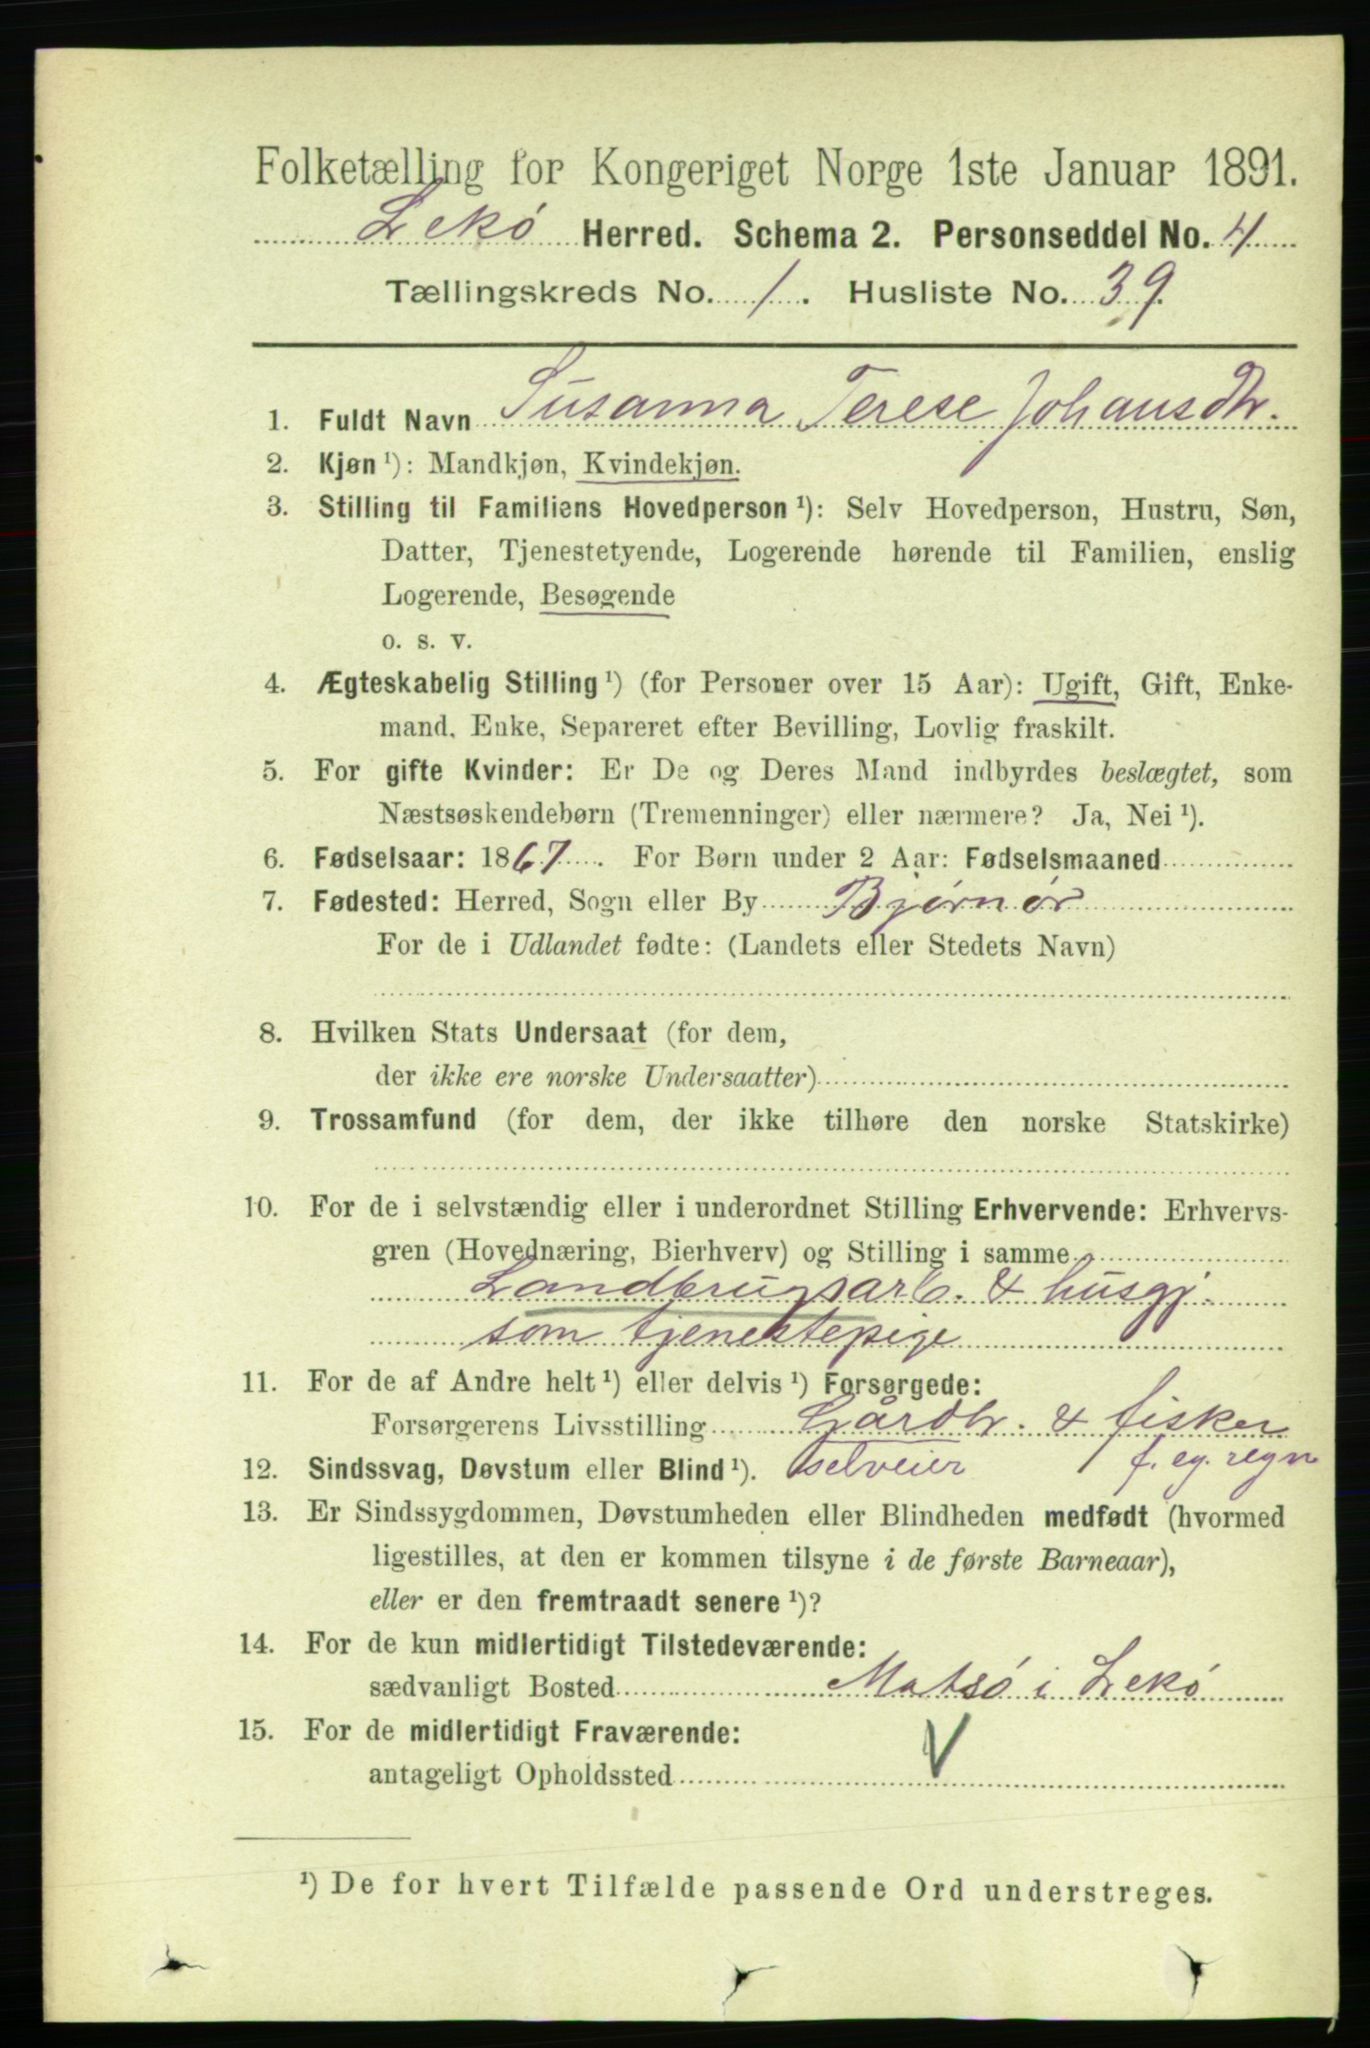 Folketælling for Kongeriget Norge 1ste Januar 1891.
Lekø Herred. Schema 2. Personseddel No. 4
Tællingskreds No. 1. Husliste No. 39.
1. Fuldt Navn Susanna Terese Johansdtr.
2. Kjøn ¹): Mandkjøn, Kvindekjøn.
3. Stilling til Familiens Hovedperson ¹): Selv Hovedperson, Hustru, Søn,
Datter, Tjenestetyende, Logerende hørende til Familien, enslig
Logerende, Besøgende
o. s. v.
4. Ægteskabelig Stilling ¹) (for Personer over 15 Aar): Ugift, Gift, Enke-
mand, Enke, Separeret efter Bevilling, Lovlig fraskilt.
5. For gifte Kvinder: Er De og Deres Mand indbyrdes beslægtet, som
Næstsøskendebørn (Tremenninger) eller nærmere? Ja, Nei ¹).
6. Fødselsaar: 1867. For Børn under 2 Aar: Fødselsmaaned
7. Fødested: Herred, Sogn eller By Bjørnør
For de i Udlandet fødte: (Landets eller Stedets Navn)
8. Hvilken Stats Undersaat (for dem,
der ikke ere norske Undersaatter)
9. Trossamfund (for dem, der ikke tilhøre den norske Statskirke)
10. For de i selvstændig eller i underordnet Stilling Erhvervende: Erhvervs-
gren (Hovednæring, Bierhverv) og Stilling i samme
Landbrugsarb. & husgj.
som tjenestepige
11. For de af Andre helt ¹) eller delvis ¹) Forsørgede:
Forsørgerens Livsstilling Gårdbr. & fisker
12. Sindssvag, Døvstum eller Blind ¹). selveier f. eg. regn
13. Er Sindssygdommen, Døvstumheden eller Blindheden medfødt (hvormed
ligestilles, at den er kommen tilsyne i de første Barneaar),
eller er den fremtraadt senere ¹)?
14. For de kun midlertidigt Tilstedeværende:
sædvanligt Bosted Matsø i Lekø
15. For de midlertidigt Fraværende:
antageligt Opholdssted
¹) De for hvert Tilfælde passende Ord understreges.